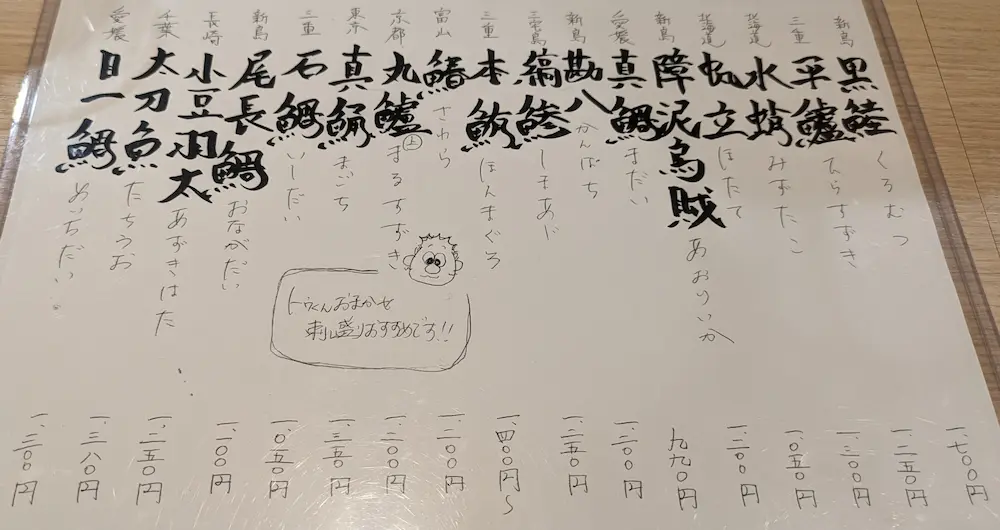 新島 黒鯥 くろむつ 一、七〇〇円
三重 平鱸 ひらすずき 一、二五〇円
北海道 水蛸 みずたこ 一、三〇〇円
北海道 帆立 ほたて 一、〇五〇円
新島 障泥烏賊 あおりいか 一、二〇〇円
愛媛 真鯛 まだい 九九〇円
新島 勘八 かんぱち 一、二〇〇円
三宅島 縞鯵 しまあじ 一、二五〇円
三重 本鮪 ほんまぐろ 一、四〇〇円〜
富山 鰆 さわら 一、二〇〇円
京都 丸鱸 まるすずき 一、二〇〇円
東京 真鯒 まごち 一、三五〇円
三重 石鯛 いしだい 一、〇五〇円
新島 尾長鯛 おながだい 一、一〇〇円
長崎 小豆羽太 あずきはた 一、二五〇円
千葉 太刀魚 たちうお 一、三八〇円
愛媛 目一鯛 めいちだい 一、三〇〇円
おまかせ
刺し盛りおすすめです!!